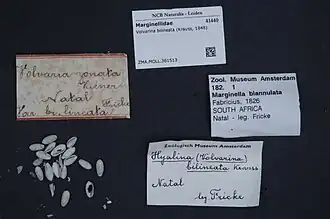 NCB Naturalis - Leiden
Marginellidae 41440
Volvarina bilineata (Krauss, 1848)
ZMA.MOLL.361513
Volvaria zonata
Kiener
Natal
Fricke
Var. bilineata
Zool. Museum Amsterdam
182. 1
Marginella biannulata
Fabricius, 1826
SOUTH AFRICA
Natal - leg. Fricke
Zoölogisch Museum Amsterdam
Hyalina (Volvarina)
bilineata Krauss
Natal
leg Fricke